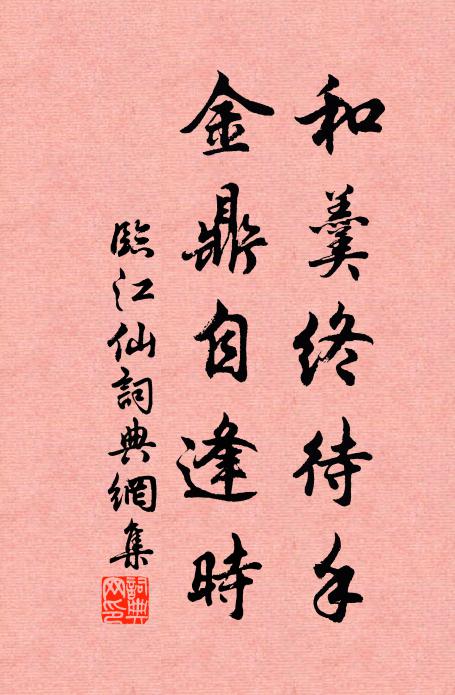 和羹終待手
金鼎自逢時
臨江仙詞典網集
詞典網印